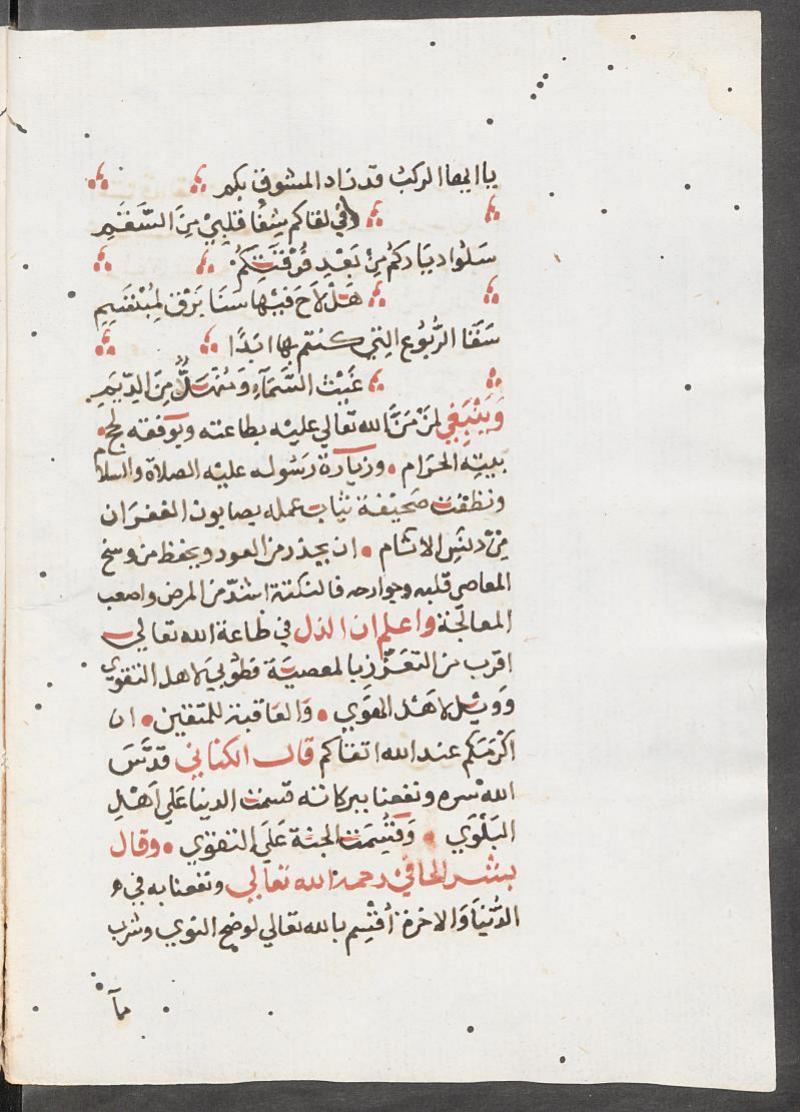 يا ايها الركب قد زاد المشوق بكم
في لقاكم شِفًا قلبِيْ مِنَ السَّقَمِ
سَلُوا دياركُم مِنْ بَعْدِ فُرْقَتِكُمُ
هَلْ لاَحَ فيْها سَنَا بَرْقٍ لِمُبْتَسِمِ
سَقَا الرُّبُوعَ التِي كنتم بها ابَدًا
غَيْثُ السَّمَآءِ وَمُنْهَلٌّ مِنَ الدِّيَمِ
وَيَنْبَغِي لمَنْ مَنَّ الله تعالي عليْه بطاعته ويوفقه لحج
بيتِه الحرَام • وزيارة رَسُوله عليْه الصلاة والسلام
ونظفت صَحيْفة ثياب عمله بصابون الغفرَان
مِنْ دنَسِ الاثام • ان يحذر من العود ويحفظ من وسخ
المعاصي قلبه وجوارحه فالنكتة اشدّ من المرض واصعب
المعالجَة واعلم ان الذل في طاعة الله تعالي
اقرب من التعَزُّزِ بالمعصيَة فطُوبيَ لاهل التقوي
وَوَيْل لاهْل الهَوَي • وَالعَاقبة للمتقين • ان
اكْرَمَكم عند الله اتقاكم قال الكناني قدَّسَ
الله سره ونفعنا ببركاته قسمت الدنيا عَلي اَهْلِ
البَلْوَي • وَقُسِمَت الجنة عَلَيَ التقوَي • وقال
بشر الحَافيْ رحمه الله تعالي ونفعنا به في
الدُّنيَا وَالاخرة اُقْسِم بالله تعالي لوضخ النوي وشرب
مآ